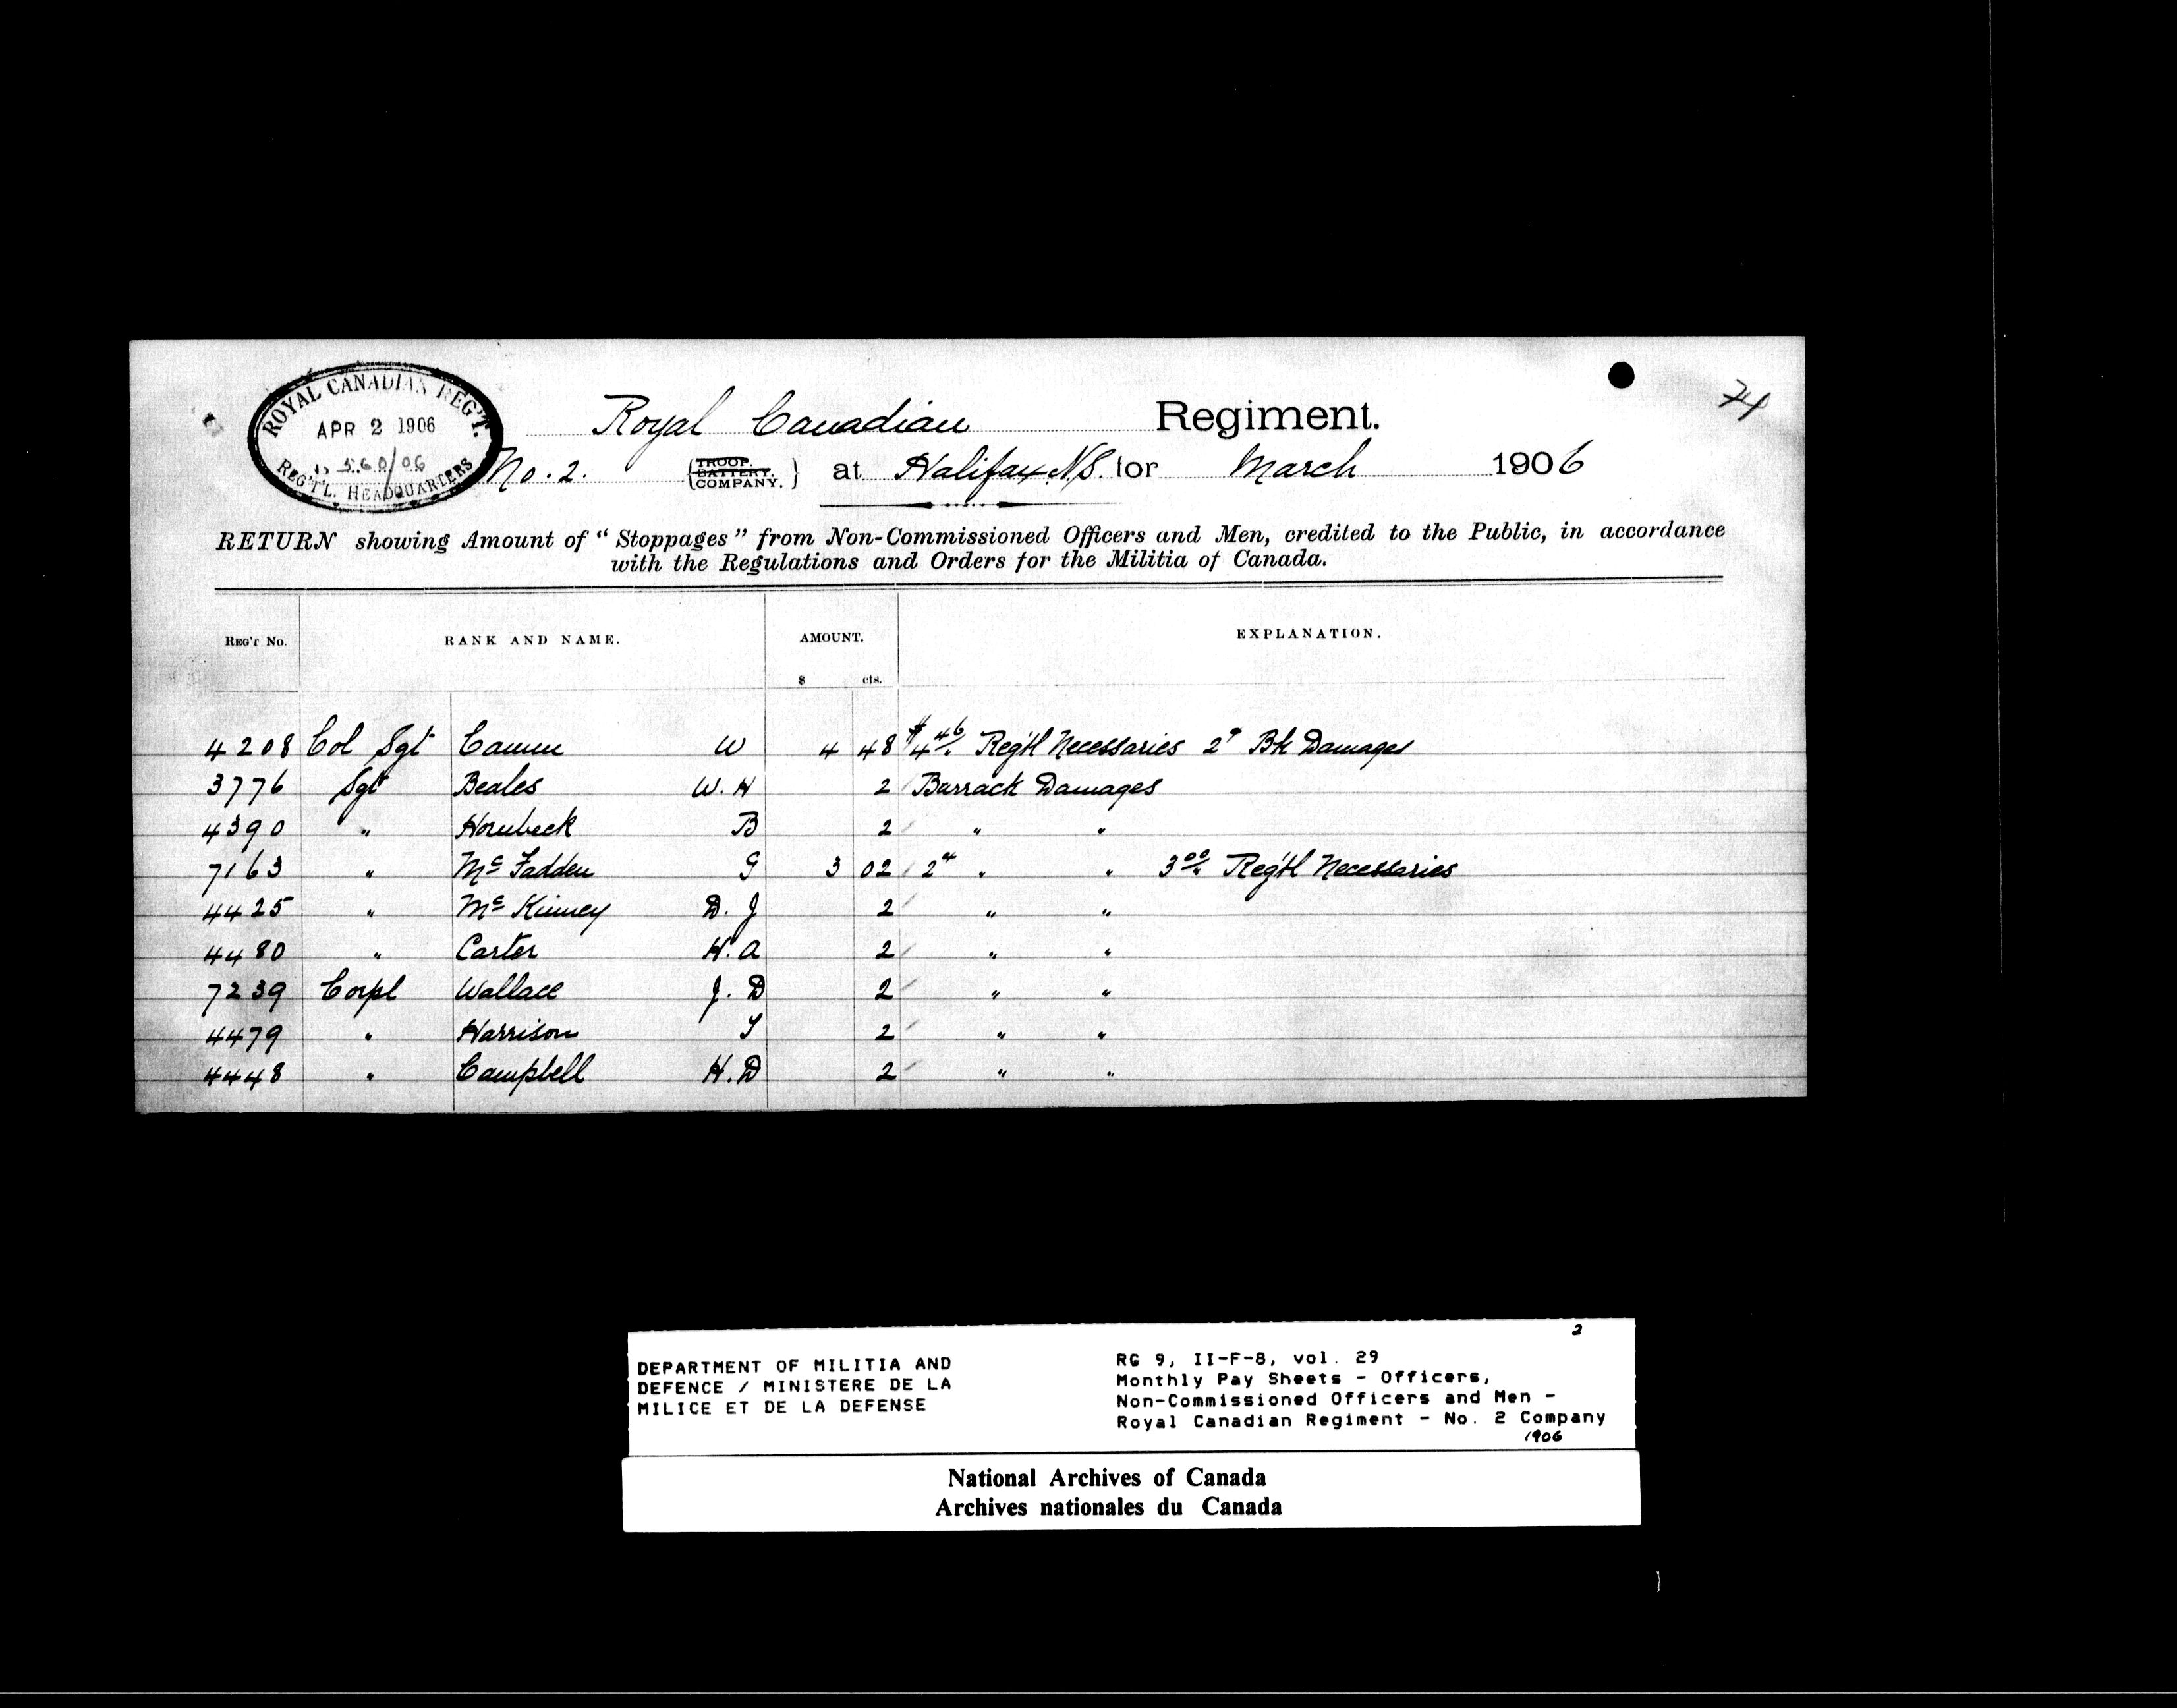 ROYAL CANADIAN REG'T.
APR 2 1906
560/06
REG'T'L. HEADQUARTERS
74
Royal Canadian Regiment.
No. 2. {TROOP. BATTERY. COMPANY.} at Halifax N.S. for March 1906
RETURN showing Amount of "Stoppages" from Non-Commissioned Officers and Men, credited to the Public, in accordance
with the Regulations and Orders for the Militia of Canada.
REG'T No. RANK AND NAME. AMOUNT. EXPLANATION.
$ cts.
4208 Col Sgt Camm W 4 48 $4.46 Reg'tl Necessaries 2 Bk Damages
3776 Sgt Beales W. H 2 Barrack Damages
4390 " Hornbeck B 2 " "
7163 " McFadden G 3 02 2 " " 3.00 Reg'tl Necessaries
4425 " McKinney D. J 2 " "
4480 " Carter H. A 2 " "
7239 Corpl Wallace J. D 2 " "
4479 " Harrison 2 " "
4448 " Campbell H. D 2 " "
2
DEPARTMENT OF MILITIA AND
DEFENCE / MINISTERE DE LA
MILICE ET DE LA DEFENSE
RG 9, II-F-8, vol. 29
Monthly Pay Sheets - Officers,
Non-Commissioned Officers and Men -
Royal Canadian Regiment - No. 2 Company
1906
National Archives of Canada
Archives nationales du Canada